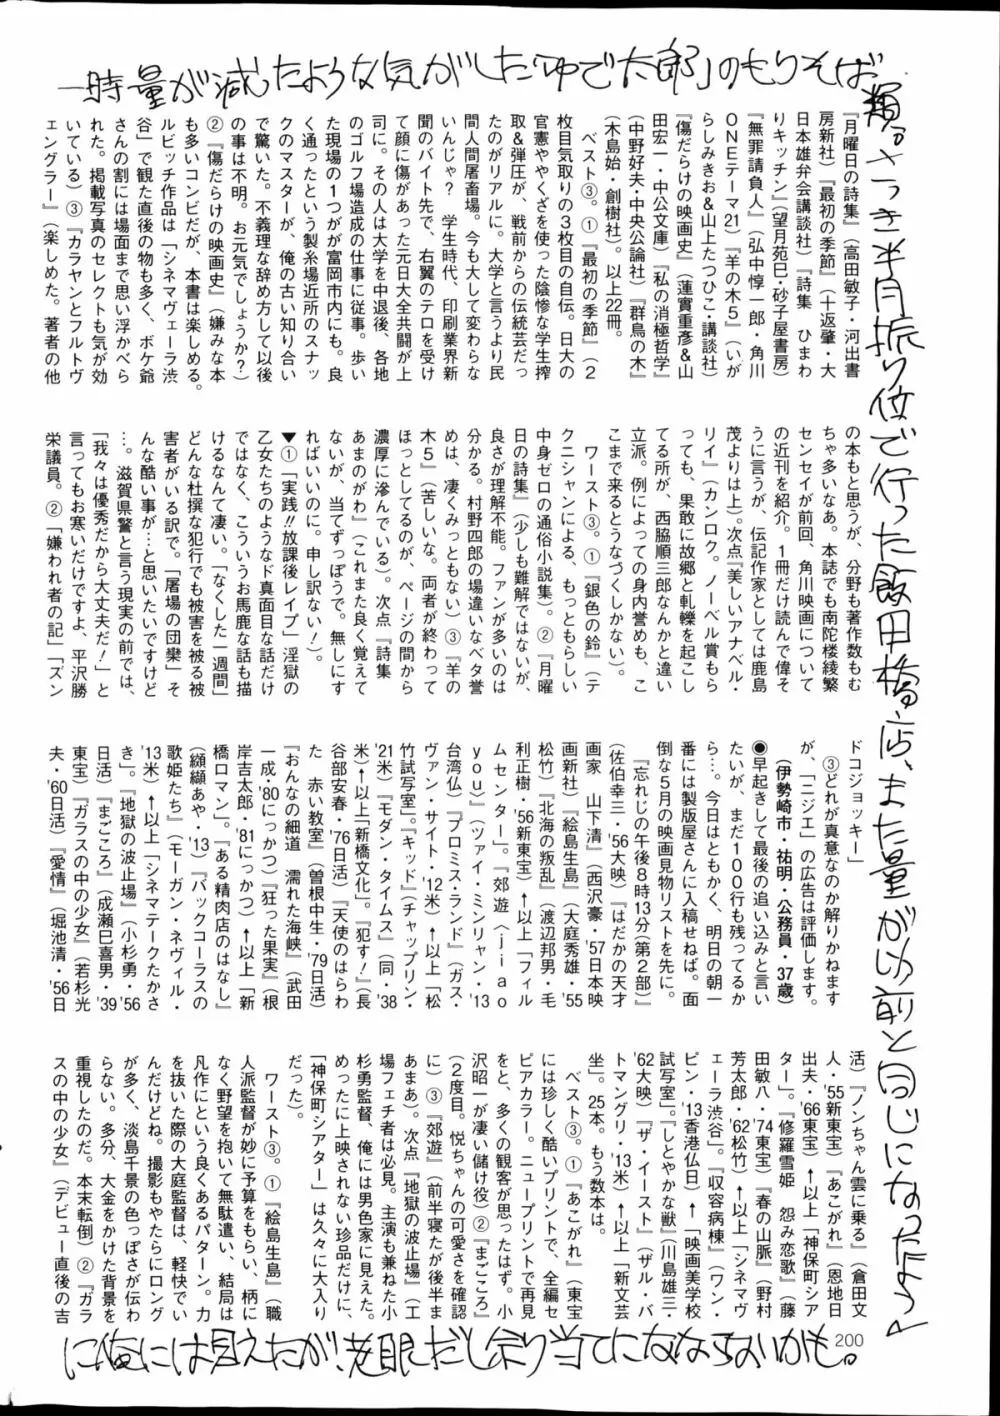 一時量が減ったような気がした「ゆで太郎」のもりそば
類。さっき半月振り位で行った飯田橋店、また量が以前と同じになったよう
に俺には見えたが、老眼だし余り当てにならないかも。
『月曜日の詩集』（高田敏子・河出書
房新社）『最初の季節』（十返肇・大
日本雄弁会講談社）『詩集　ひまわ
りキッチン』（望月苑巳・砂子屋書房）
『無罪請負人』（弘中惇一郎・角川
ＯＮＥテーマ21）『羊の木５』（いが
らしみきお＆山上たつひこ・講談社）
『傷だらけの映画史』（蓮實重彦＆山
田宏一・中公文庫）『私の消極哲学』
（中野好夫・中央公論社）『群鳥の木』
（木島始・創樹社）。以上22冊。
ベスト③。①『最初の季節』（２
枚目気取りの３枚目の自伝。日大の
官憲ややくざを使った陰惨な学生搾
取＆弾圧が、戦前からの伝統芸だっ
たのがリアルに。大学と言うより民
間人間屠畜場。今も大して変わらな
いんじゃ？　学生時代、印刷業界新
聞のバイト先で、右翼のテロを受け
て顔に傷があった元日大全共闘が上
司に。その人は大学を中退後、各地
のゴルフ場造成の仕事に従事。歩い
た現場の１つがが富岡市内にも。良
く通ったという製糸場近所のスナッ
クのマスターが、俺の古い知り合い
で驚いた。不義理な辞め方して以後
の事は不明。お元気でしょうか？）
②『傷だらけの映画史』（嫌みな本
も多いコンビだが、本書は楽しめる。
ルビッチ作品は「シネマヴェーラ渋
谷」で観た直後の物も多く、ボケ爺
さんの割には場面まで思い浮かべら
れた。掲載写真のセレクトも気が効
いている）③『カラヤンとフルトヴ
ェングラー』（楽しめた。著者の他
の本もと思うが、分野も著作数もむ
ちゃ多いなあ。本誌でも南陀楼綾繁
センセイが前回、角川映画について
の近刊を紹介。１冊だけ読んで偉そ
うに言うが、伝記作家としては鹿島
茂よりは上）。次点『美しいアナベル・
リイ』（カンロク。ノーベル賞もら
っても、果敢に故郷と軋轢を起こし
てる所が、西脇順三郎なんかと違い
立派。例によっての身内誉めも、こ
こまで来るとうなづくしかない）。
ワースト③。①『銀色の鈴』（テ
クニシャンによる、もっともらしい
中身ゼロの通俗小説集）。②『月曜
日の詩集』（少しも難解ではないが、
良さが理解不能。ファンが多いのは
分かる。村野四郎の場違いなベタ誉
めは、凄くみっともない）③『羊の
木５』（苦しいな。両者が終わって
ほっとしてるのが、ページの間から
濃厚に滲んでいる）。次点『詩集
あまのがわ』（これまた良く覚えて
ないが、当てずっぽうで。無しにす
ればいいのに。申し訳ない！）。
▼①「実践!!放課後レイプ」淫獄の
乙女たちのようなド真面目な話だけ
ではなく、こういうお馬鹿な話も描
けるなんて凄い。「なくした一週間」
どんな杜撰な犯行でも被害を被る被
害者がいる訳で。「屠場の団欒」そ
んな酷い事が…と思いたいですけど
…。滋賀県警と言う現実の前では、
「我々は優秀だから大丈夫だ！」と
言ってもお寒いだけですよ、平沢勝
栄議員。②「嫌われ者の記」「ズン
ドコジョッキー」
③どれが真意なのか解りかねます
が、「ニジエ」の広告は評価します。
（伊勢崎市・祐明・公務員・37歳）
●早起きして最後の追い込みと言い
たいが、まだ１００行も残ってるか
ら…。今日はともかく、明日の朝一
番には製版屋さんに入稿せねば。面
倒な５月の映画見物リストを先に。
『忘れじの午後８時13分（第２部）』
（佐伯幸三・'56大映）『はだかの天才
画家　山下清』（西沢豪・'57日本映
画新社）『絵島生島』（大庭秀雄・'55
松竹）『北海の叛乱』（渡辺邦男・毛
利正樹・'56新東宝）↑以上「フィル
ムセンター」。『郊遊（ｊｉａｏ
ｙｏｕ）』（ツァイ・ミンリャン・'13
台湾仏）『プロミス・ランド』（ガス・
ヴァン・サイト・'12米）↑以上「松
竹試写室」。『キッド』（チャップリン・
'21米）『モダン・タイムス』（同・'38
米）↑以上「新橋文化」。『犯す！』（長
谷部安春・'76日活）『天使のはらわ
た　赤い教室』（曽根中生・'79日活）
『おんなの細道　濡れた海峡』（武田
一成・'80にっかつ）『狂った果実』（根
岸吉太郎・'81にっかつ）↑以上「新
橋ロマン」。『ある精肉店のはなし』
（纐纈あや・'13）『バックコーラスの
歌姫たち』（モーガン・ネヴィル・
'13米）↑以上「シネマテークたかさ
き」。『地獄の波止場』（小杉勇・'56
日活）『まごころ』（成瀬巳喜男・'39
東宝）『ガラスの中の少女』（若杉光
夫・'60日活）『愛情』（堀池清・'56日
活）『ノンちゃん雲に乗る』（倉田文
人・'55新東宝）『あこがれ』（恩地日
出夫・'66東宝）↑以上「神保町シア
ター」。『修羅雪姫　怨み恋歌』（藤
田敏八・'74東宝）『春の山脈』（野村
芳太郎・'62松竹）↑以上「シネマヴ
ェーラ渋谷」。『収容病棟』（ワン・
ビン・'13香港仏日）↑「映画美学校
試写室」。『しとやかな獣』（川島雄三・
'62大映）『ザ・イースト』（ザル・バ
トマングリ・'13米）↑以上「新文芸
坐」。25本。もう数本は。
ベスト③。①『あこがれ』（東宝
には珍しく酷いプリントで、全編セ
ピアカラー。ニュープリントで再見
をと、多くの観客が思ったはず。小
沢昭一が凄い儲け役）②『まごころ』
（２度目。悦ちゃんの可愛さを確認
に）③『郊遊』（前半寝たが後半ま
あまあ）。次点『地獄の波止場』（工
場フェチ者は必見。主演も兼ねた小
杉勇監督、俺には男色家に見えた。
めったに上映されない珍品だけに、
「神保町シアター」は久々に大入り
だった）。
ワースト③。①『絵島生島』（職
人派監督が妙に予算をもらい、柄に
なく野望を抱いて無駄遣い、結局は
凡作にという良くあるパターン。力
を抜いた際の大庭監督は、軽快でい
んだけどね。撮影もやたらにロング
が多く、淡島千景の色っぽさが伝わ
らない。多分、大金をかけた背景を
重視したのだ。本末転倒）②『ガラ
スの中の少女』（デビュー直後の吉
200